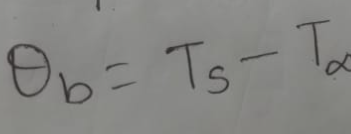 θb = Ts - Tα